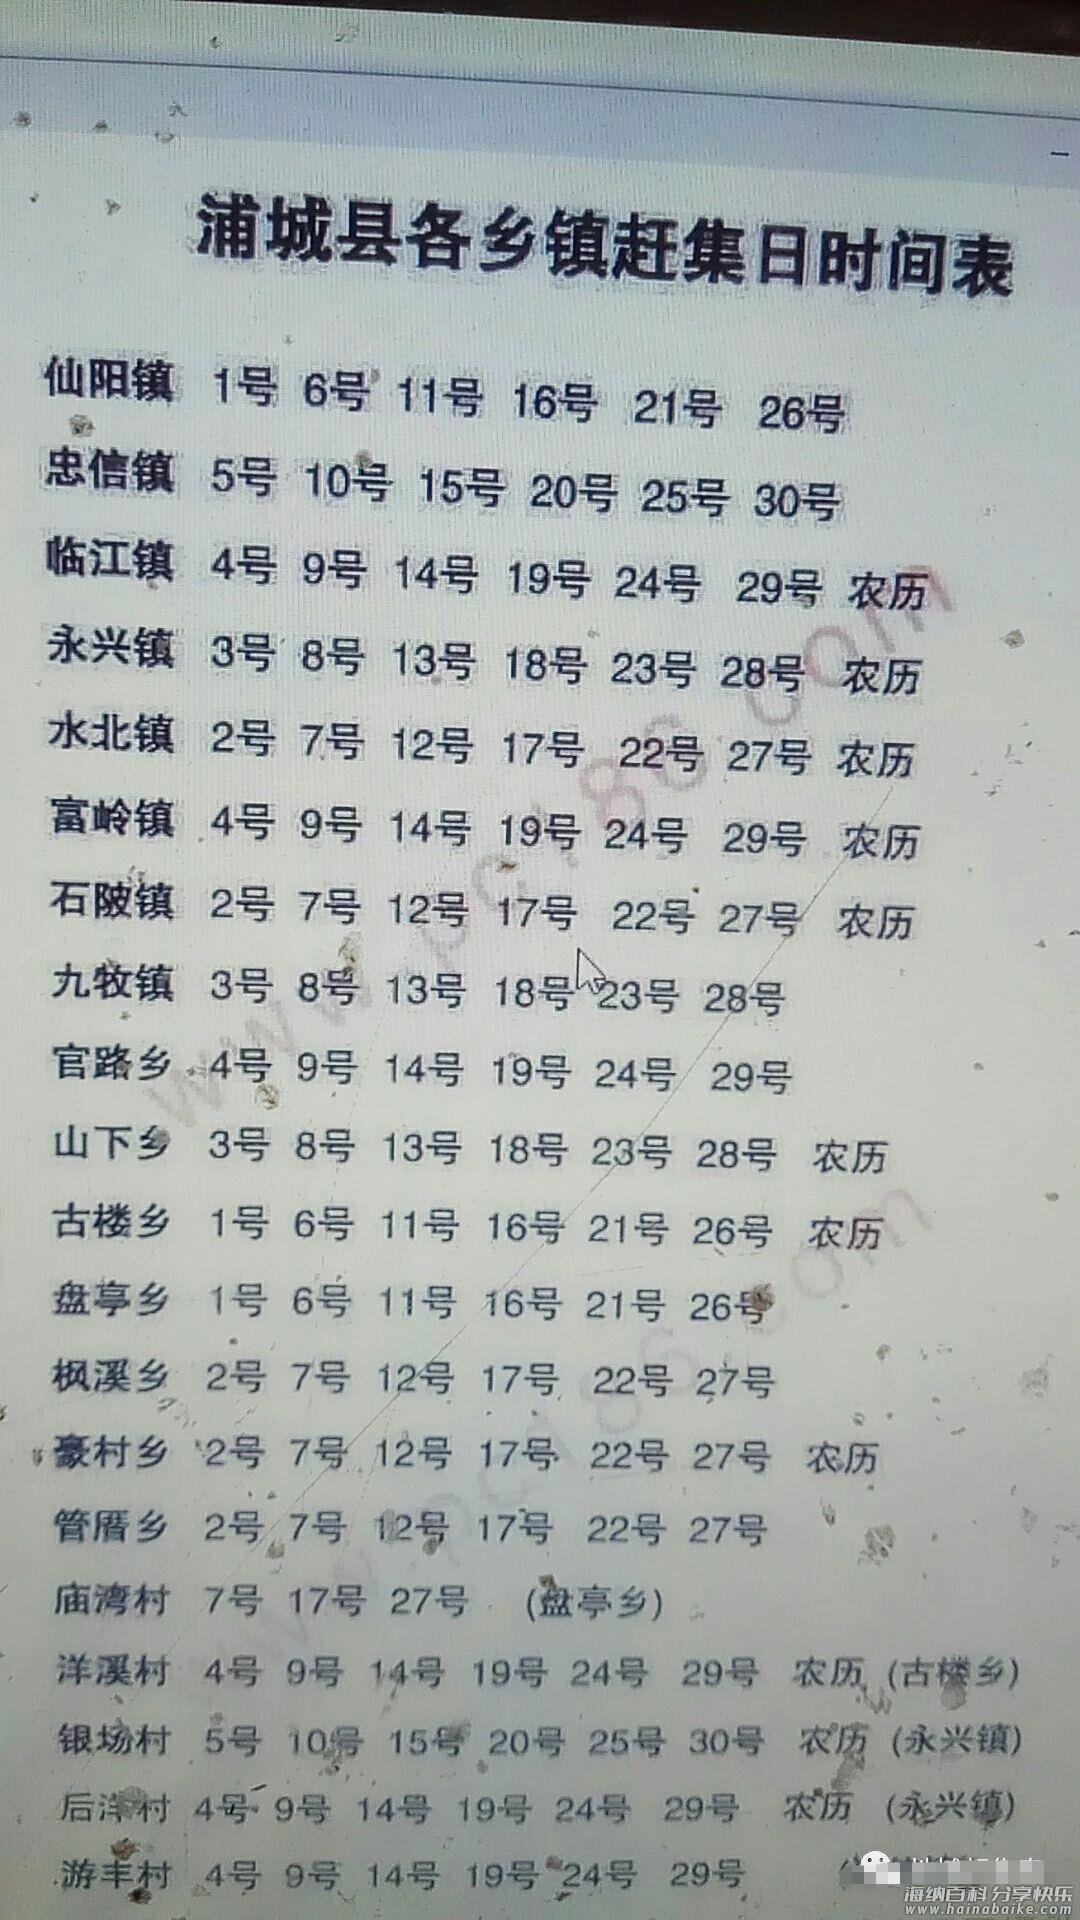 浦城县各乡镇赶集日时间表
仙阳镇 1号 6号 11号 16号 21号 26号
忠信镇 5号 10号 15号 20号 25号 30号
临江镇 4号 9号 14号 19号 24号 29号 农历
永兴镇 3号 8号 13号 18号 23号 28号 农历
水北镇 2号 7号 12号 17号 22号 27号 农历
富岭镇 4号 9号 14号 19号 24号 29号 农历
石陂镇 2号 7号 12号 17号 22号 27号 农历
九牧镇 3号 8号 13号 18号 23号 28号
官路乡 4号 9号 14号 19号 24号 29号
山下乡 3号 8号 13号 18号 23号 28号 农历
古楼乡 1号 6号 11号 16号 21号 26号 农历
盘亭乡 1号 6号 11号 16号 21号 26号
枫溪乡 2号 7号 12号 17号 22号 27号
豪村乡 2号 7号 12号 17号 22号 27号 农历
管厝乡 2号 7号 12号 17号 22号 27号
庙湾村 7号 17号 27号 (盘亭乡)
洋溪村 4号 9号 14号 19号 24号 29号 农历 (古楼乡)
银场村 5号 10号 15号 20号 25号 30号 农历 (永兴镇)
后洋村 4号 9号 14号 19号 24号 29号 农历 (永兴镇)
游丰村 4号 9号 14号 19号 24号 29号
海纳百科 分享快乐
www.hainabaike.com